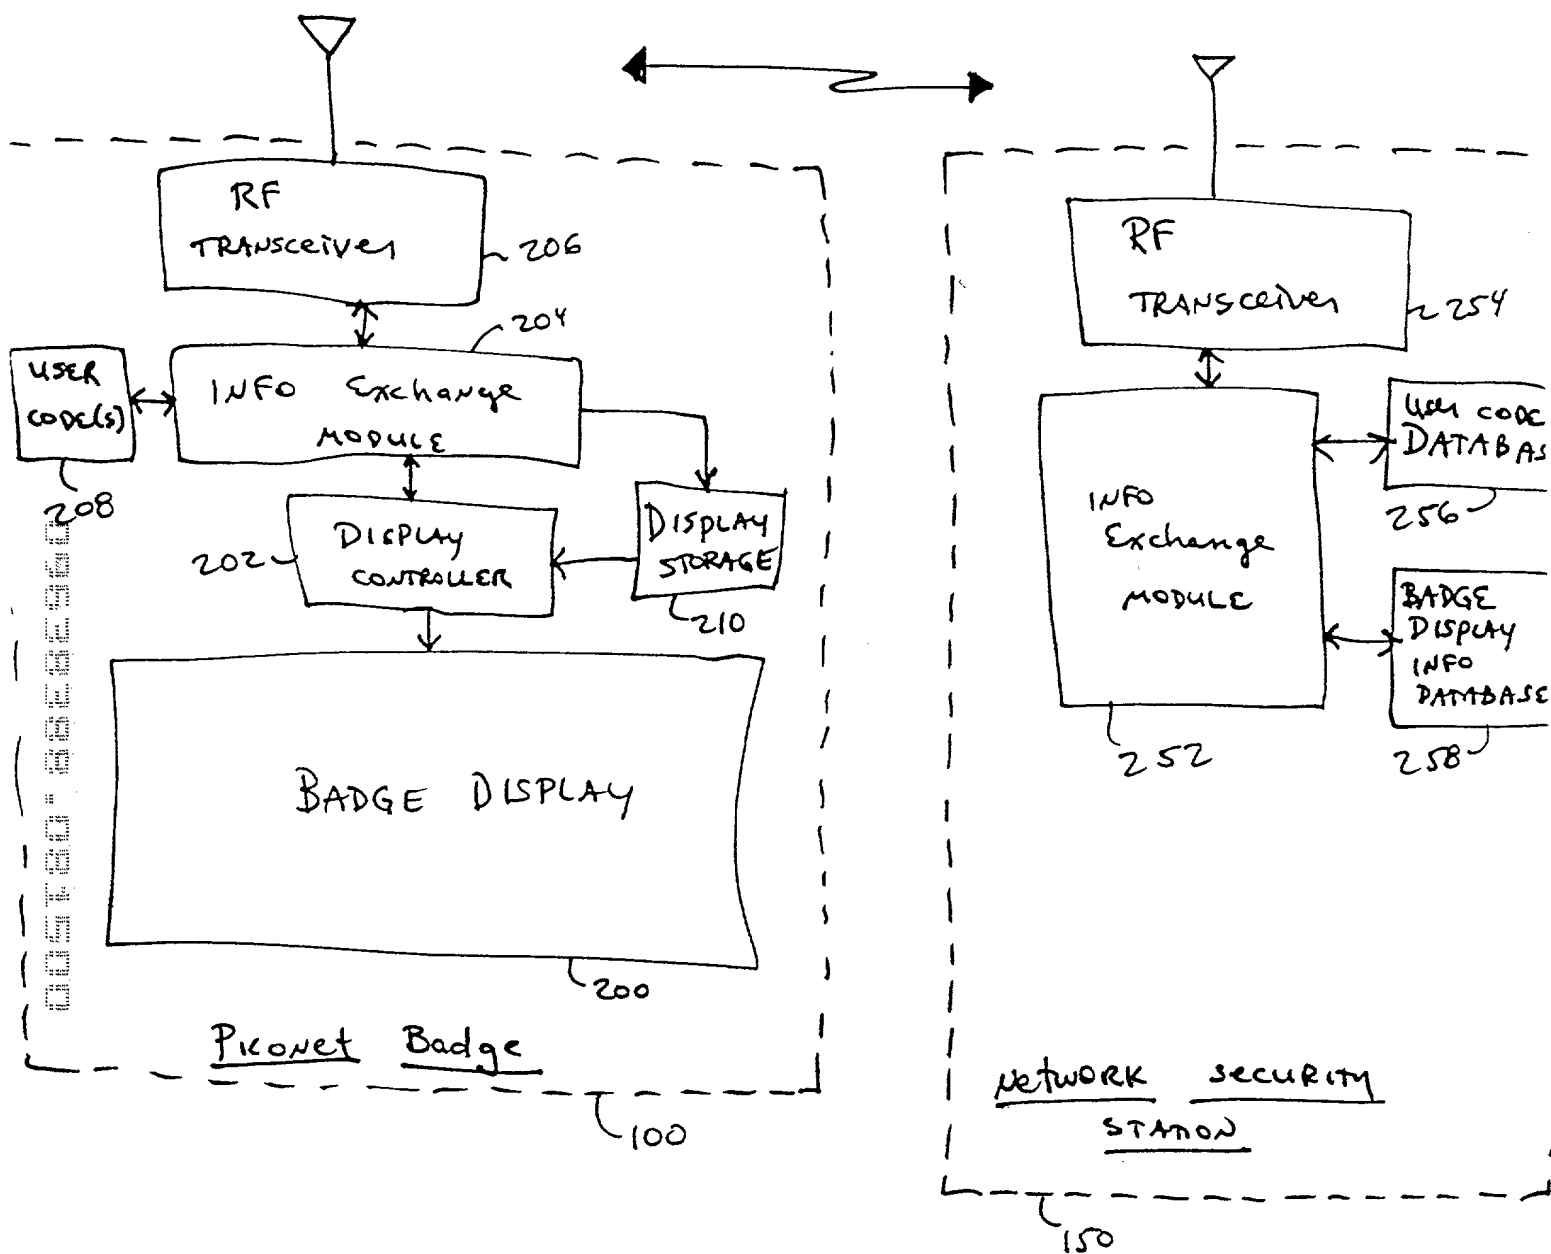 RF
TRANSceiver
206
204
USER
CODE(S)
208
INFO Exchange
MODULE
202
DISPLAY
CONTROLLER
DISPLAY
STORAGE
210
BADGE DISPLAY
200
Piconet Badge
100
RF
TRANSceiver
254
INFO
Exchange
MODULE
252
User CODE
DATABAS
256
BADGE
DISPLAY
INFO
DATABASE
258
Network Security
STATION
150